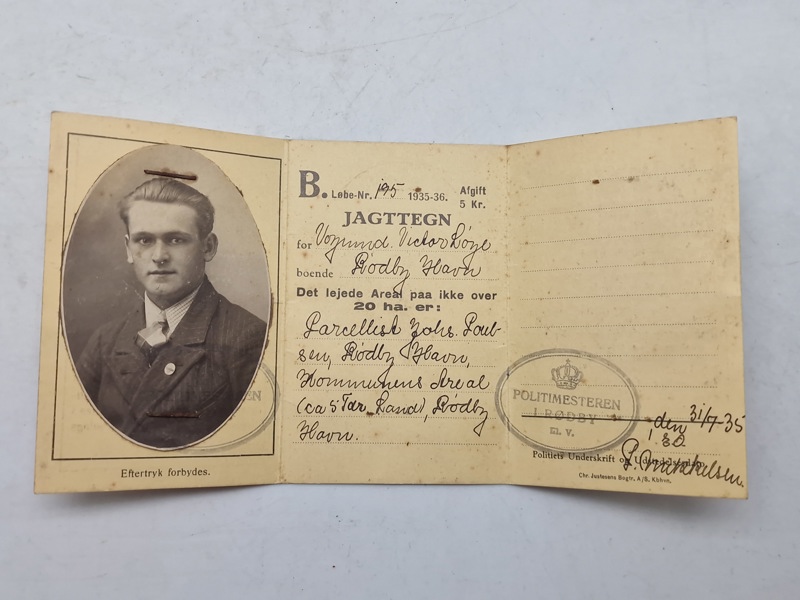 Eftertryk forbydes.
B. Løbe-Nr. 195 1935-36. Afgift 5 Kr.
JAGTTEGN
for Victor Løye
boende Rødby Havn
Det lejede Areal paa ikke over
20 ha. er:
Parcellist Johs. Poul-
sen, Rødby Havn,
Kommunens Areal
(ca 5 Tdr. Land), Rødby
Havn.
POLITIMESTEREN
I RØDBY
m. v.
den 31/7-35
Politiets Underskrift og
P. Mikkelsen.
Chr. Justesens Bogtr. A/S, Kbhvn.
EN